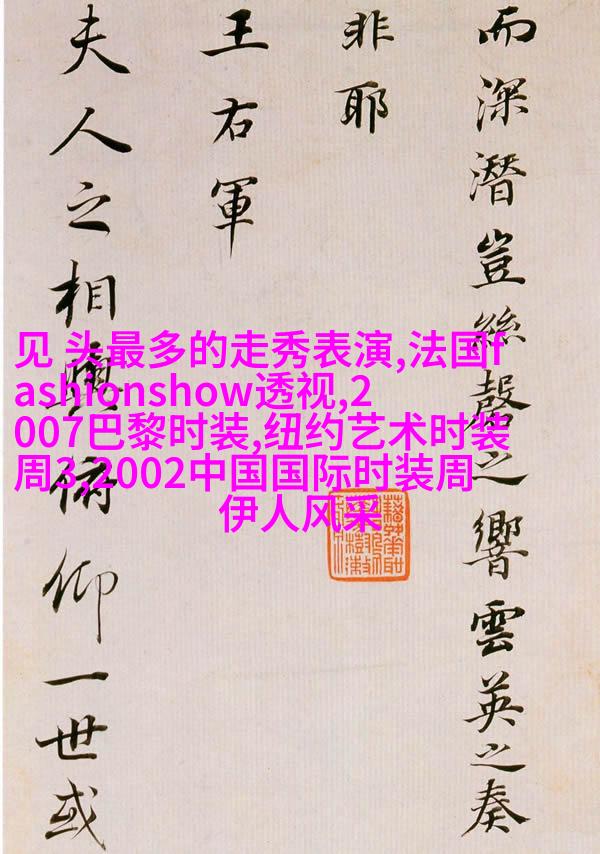 而深潛豈絲磬之響雲英之奏
非耶
王右軍
夫人之相與俯仰一世或
见 头最多的走秀表演,法国f
ashionshow透视,2
007巴黎时装,纽约艺术时装
周3,2002中国国际时装周
伊人风采